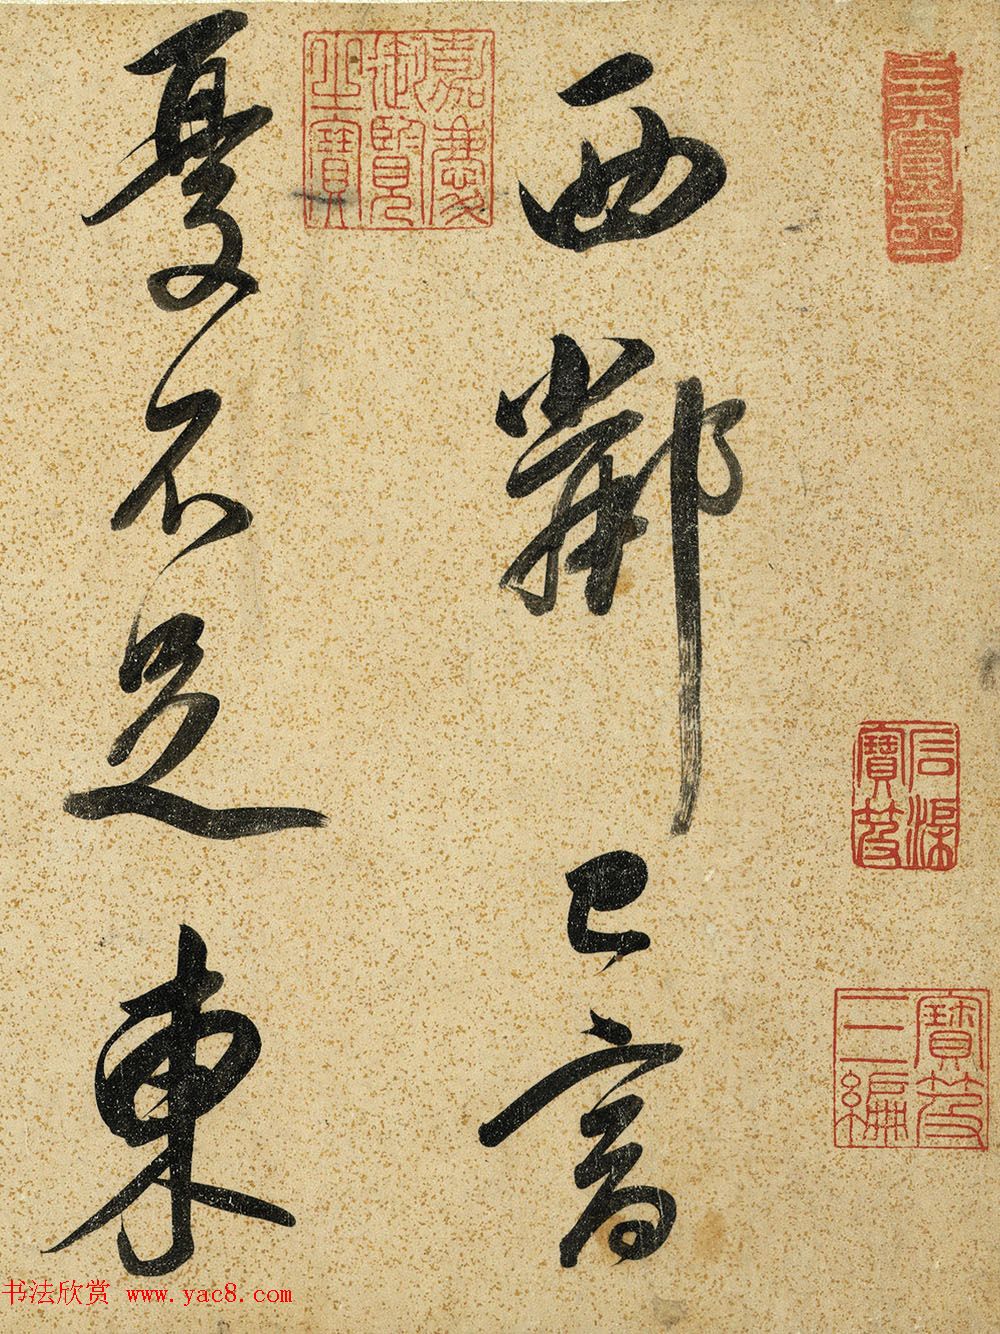 西鄰已富
憂不足東
嘉慶
御覽
之寶
石渠
寶笈
寶笈
三編
书法欣赏 www.yac8.com